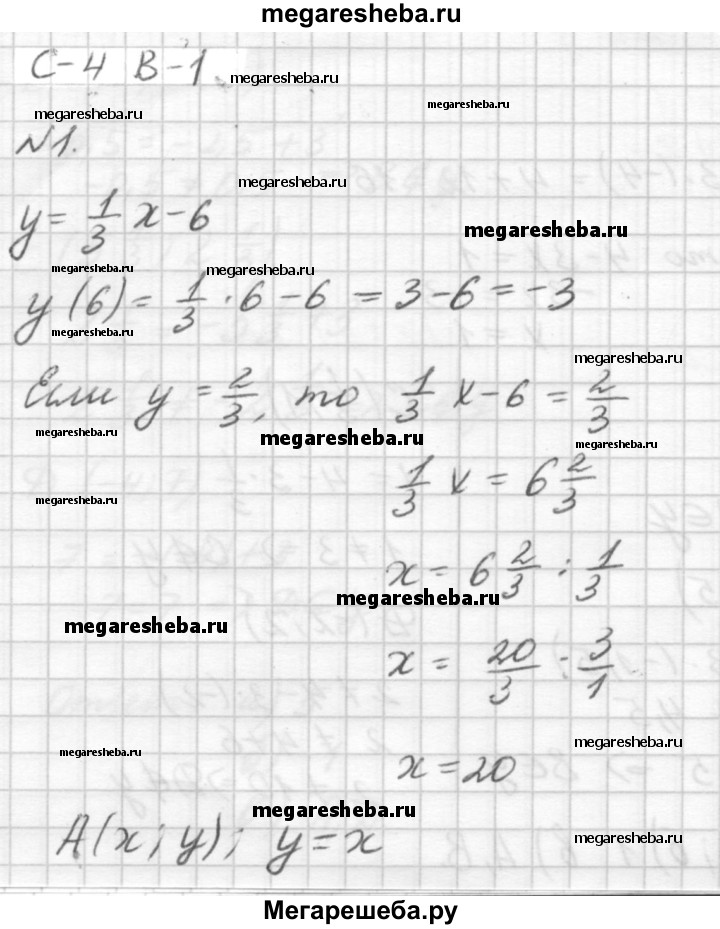 megaresheba.ru
С-4 В-1 megaresheba.ru
megaresheba.ru megaresheba.ru
№1.
megaresheba.ru
y = 1/3 x - 6
megaresheba.ru
megaresheba.ru megaresheba.ru
y(6) = 1/3 · 6 - 6 = 3 - 6 = -3
megaresheba.ru
megaresheba.ru
Если y = 2/3, то 1/3 x - 6 = 2/3
megaresheba.ru megaresheba.ru megaresheba.ru
1/3 x = 6 2/3
megaresheba.ru
x = 6 2/3 : 1/3
megaresheba.ru
megaresheba.ru
x = 20/3 · 3/1
megaresheba.ru
megaresheba.ru
x = 20
megaresheba.ru
A(x; y); y = x
megaresheba.ru
Мегарешеба.ру